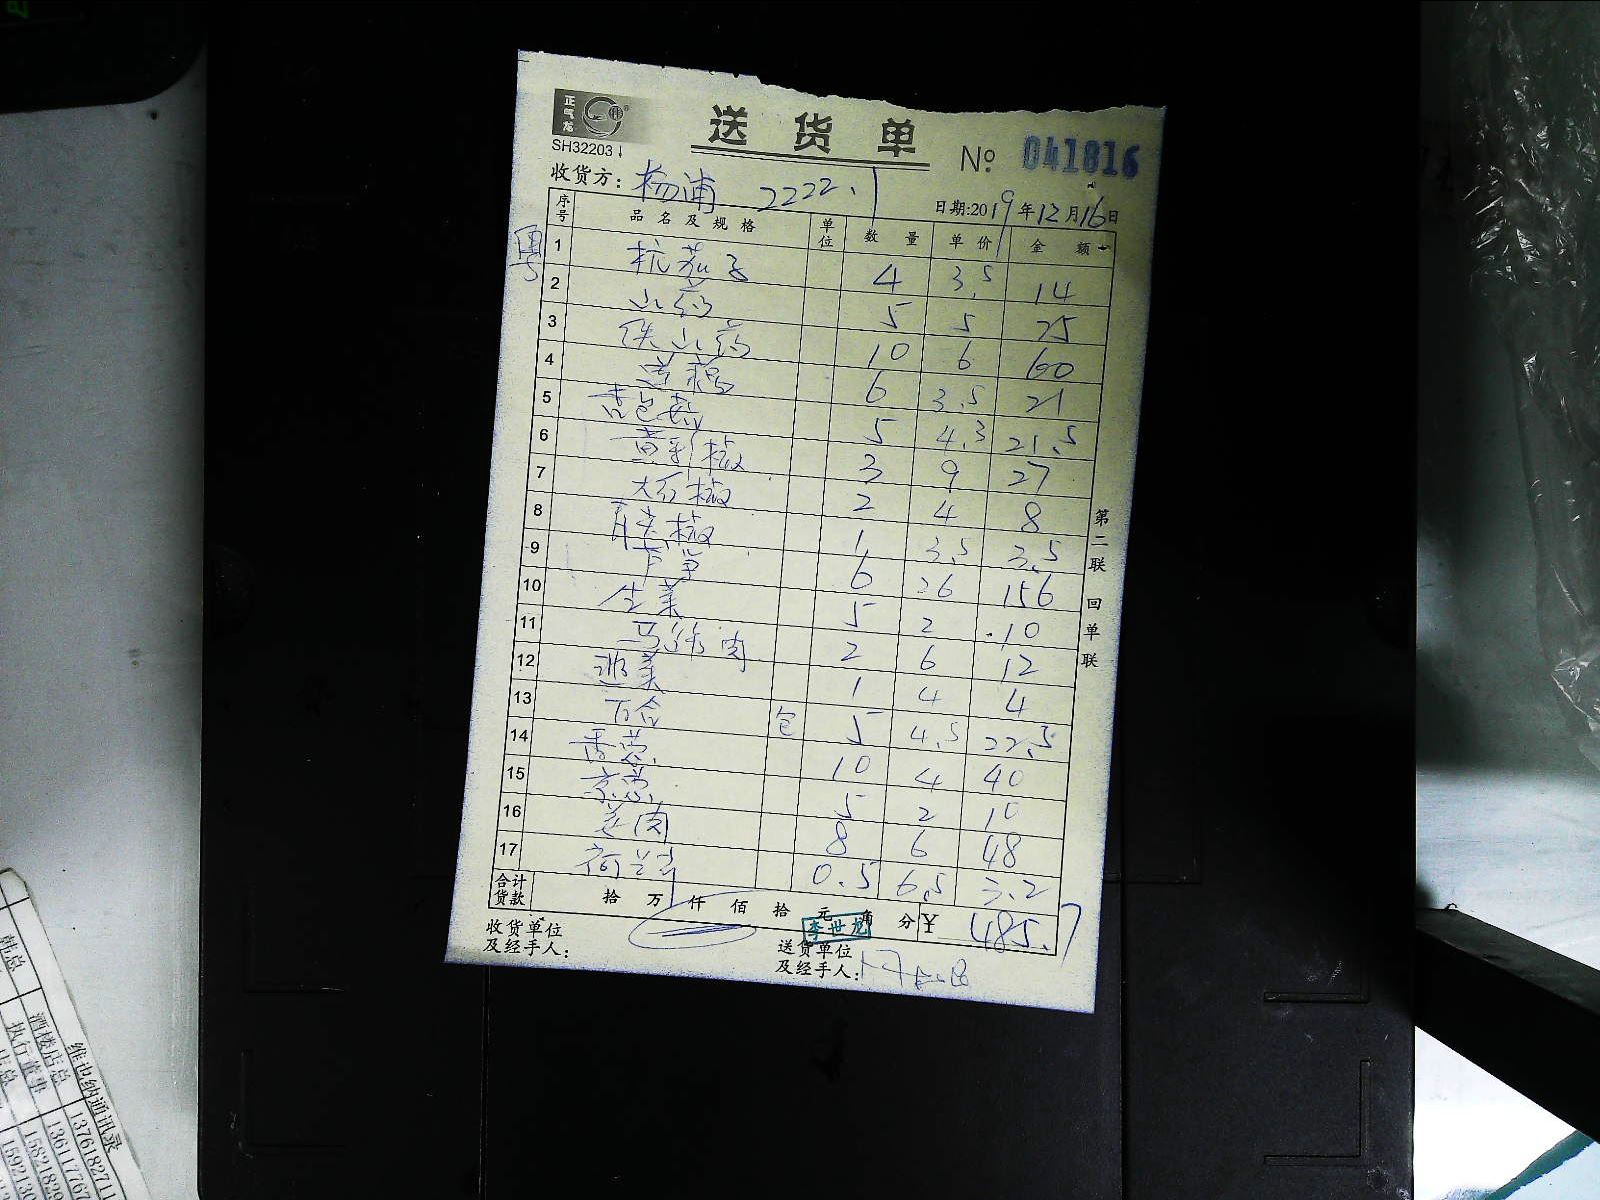 正气龙
送货单
SH32203
№ 041816
收货方: 杨浦 2222.1
日期:2019年12月16日
序号 品名及规格 单位 数量 单价 金额
粤
1 杭茄子 4 3.5 14
2 山药 5 5 25
3 铁山药 10 6 60
4 6 3.5 21
5 杏包菇 5 4.3 21.5
6 黄彩椒 3 9 27
7 大石椒 2 4 8
8 青尖椒 1 3.5 3.5
9 芦笋 6 26 156
10 生菜 5 2 10
11 马蹄肉 2 6 12
12 1 4 4
13 百合 包 5 4.5 22.5
14 香葱 10 4 40
15 京葱 5 2 10
16 姜肉 8 6 48
17 荷兰芹 0.5 6.5 3.2
合计货款 拾 万 仟 佰 拾 元 角 分 ¥ 485.7
收货单位及经手人:
送货单位及经手人:
李世龙
第二联 回单联
维也纳通讯录
酒楼店总 1376182711
执行董事 136117767
韩总
店总